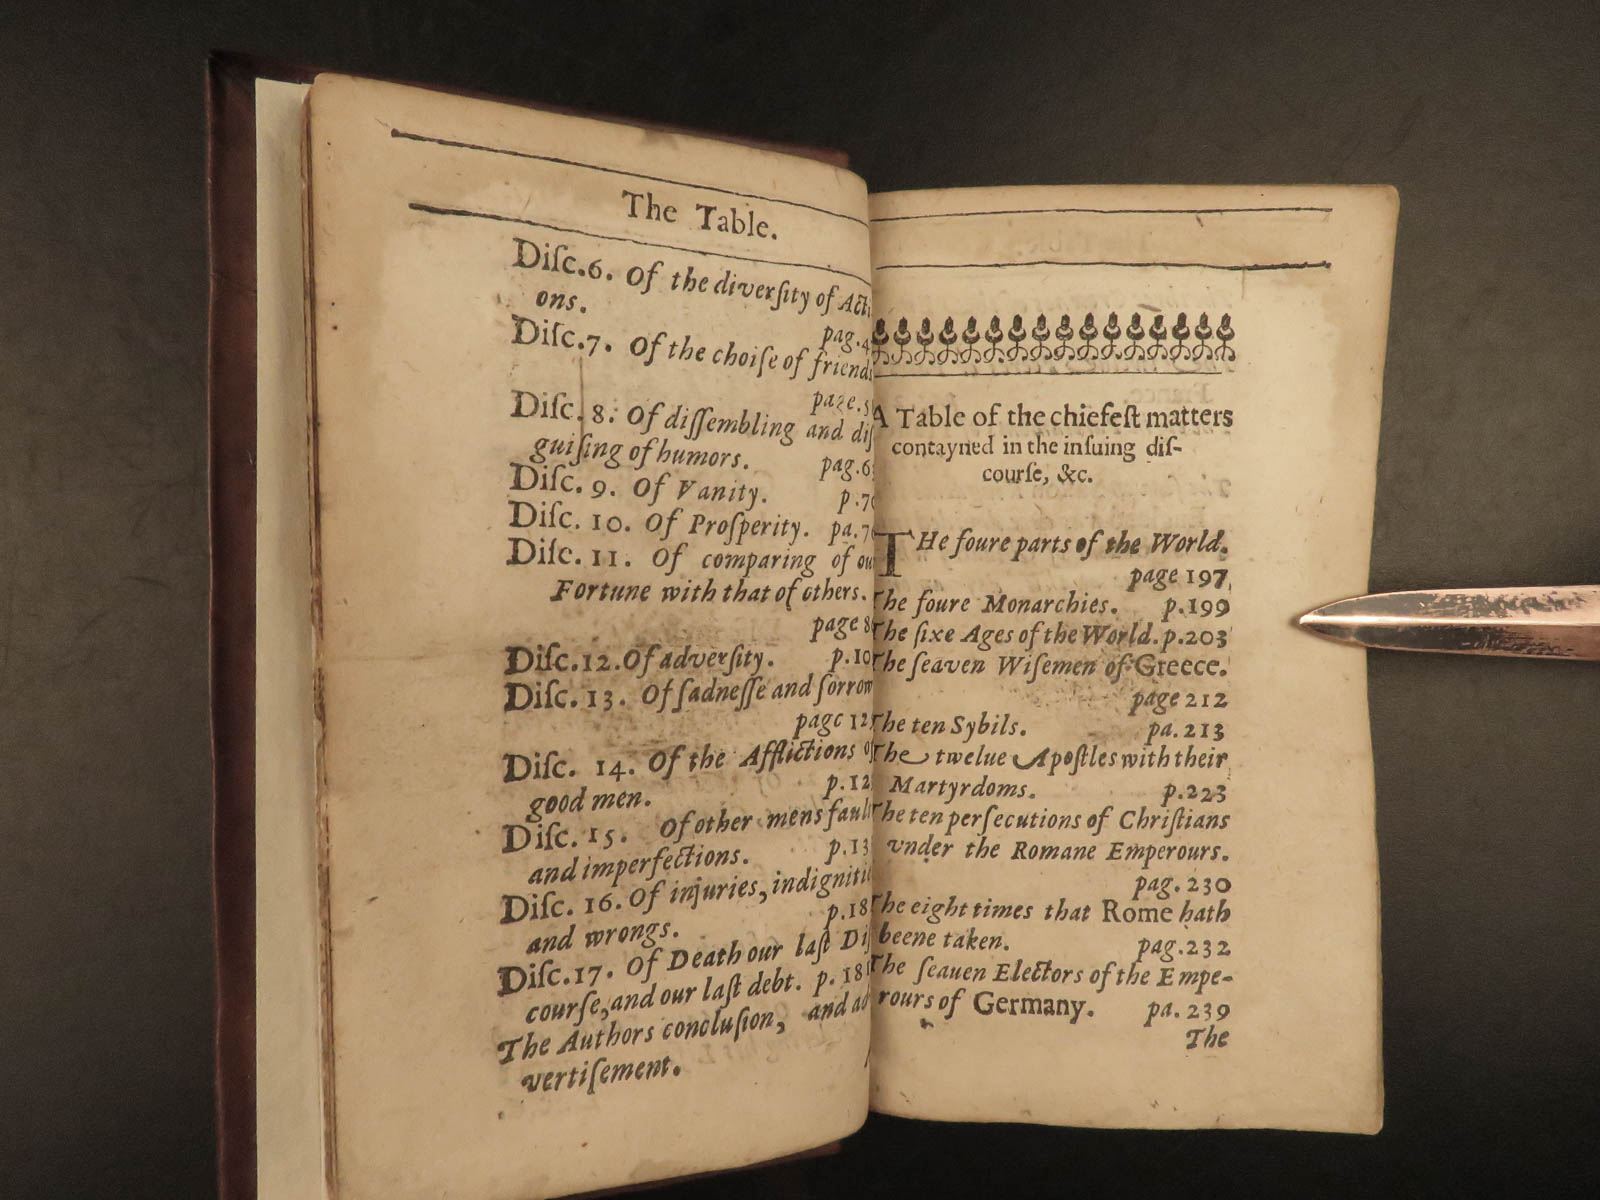 The Table.
Diſc.6. Of the diverſity of Acti
ons.
pag.4
Diſc.7. Of the choiſe of friends
page.5
Diſc.8. Of diſſembling and diſ
guiſing of humors. pag.6
Diſc. 9. Of Vanity. p.7
Diſc. 10. Of Proſperity. pa.7
Diſc. 11. Of comparing of ou
Fortune with that of others.
page 8
Diſc.12. Of adverſity. p.10
Diſc. 13. Of ſadneſſe and ſorrow
page 12
Diſc. 14. Of the Afflictions of
good men. p.12
Diſc. 15. Of other mens fault
and imperfections. p.13
Diſc. 16. Of injuries, indigniti
and wrongs. p.18
Diſc.17. Of Death our laſt Diſ
courſe, and our laſt debt. p. 18
The Authors concluſion, and ad
vertiſement.
A Table of the chiefeſt matters
contayned in the inſuing diſ-
courſe, &c.
THe foure parts of the World.
page 197
The foure Monarchies. p.199
The ſixe Ages of the World. p.203
The ſeaven Wiſemen of Greece.
page 212
The ten Sybils. pa.213
The twelue Apoſtles with their
Martyrdoms. p.223
The ten perſecutions of Chriſtians
vnder the Romane Emperours.
pag. 230
The eight times that Rome hath
beene taken. pag.232
The ſeauen Electors of the Empe-
rours of Germany. pa. 239
The